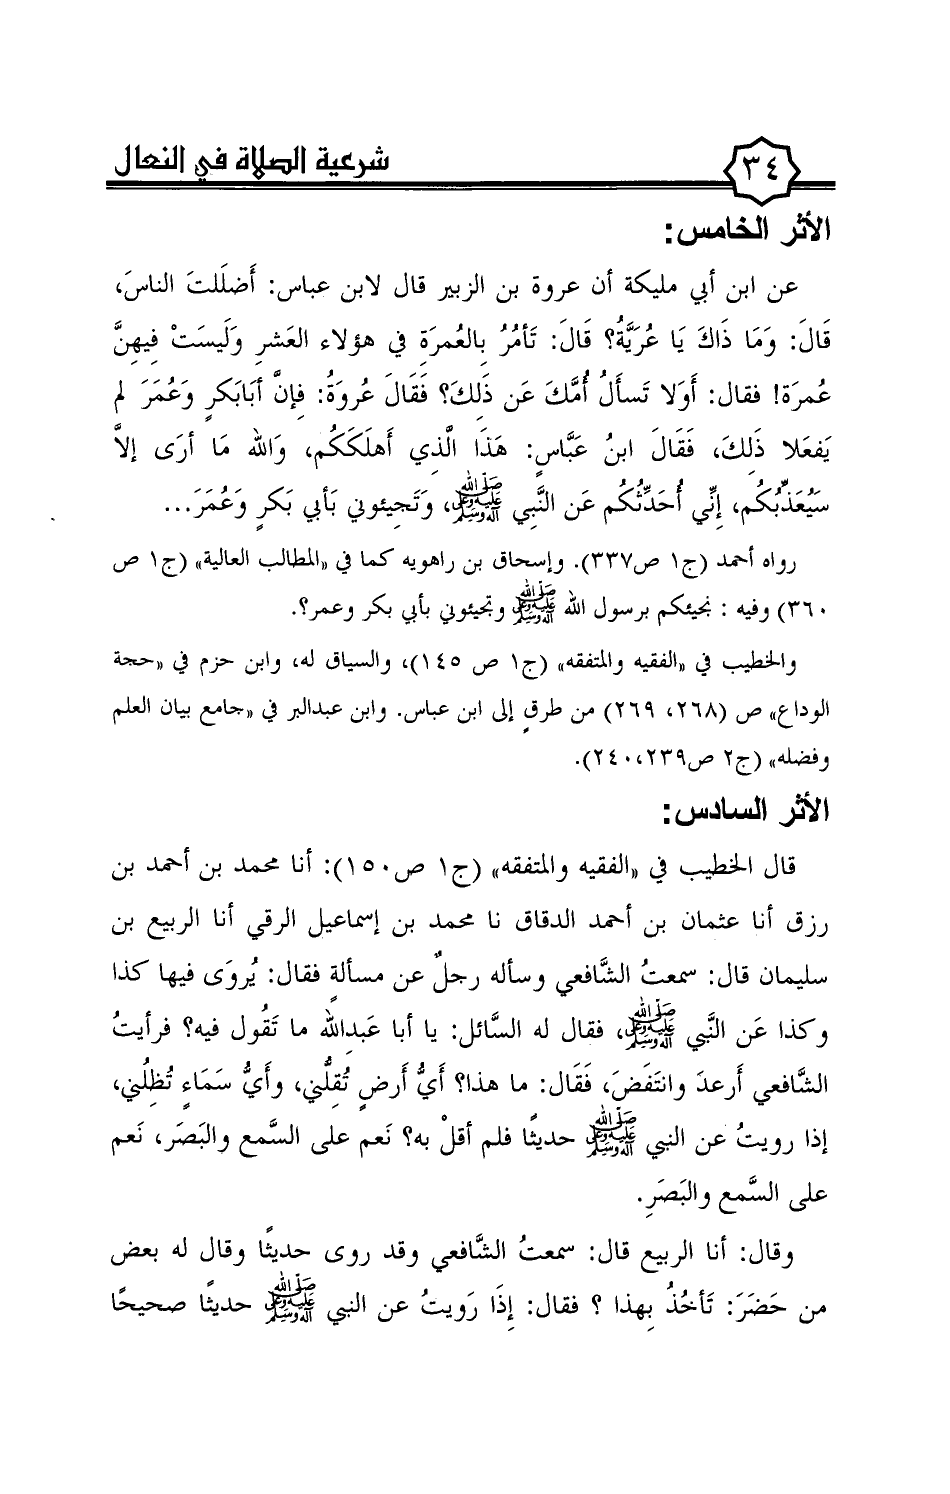 شرعية الصلاة في النعال
٣٤
الأثر الخامس:
عن ابن أبي مليكة أن عروة بن الزبير قال لابن عباس: أَضلَلتَ الناسَ،
قَالَ: وَمَا ذَاكَ يَا عُرَيَّةُ؟ قَالَ: تَأمُرُ بِالعُمرَةِ فِي هؤلاء العَشرِ وَلَيسَتْ فِيهِنَّ
عُمرَة! فقال: أَوَلا تَسأَلُ أُمَّكَ عَن ذَلِكَ؟ فَقَالَ عُروَةُ: فإنَّ أبَابَكرٍ وَعُمَرَ لم
يَفعَلا ذَلِكَ، فَقَالَ ابنُ عَبَّاسٍ: هَذَا الَّذِي أَهلَكَكُم، وَالله مَا أرَى إلاَّ
سَيُعَذِّبُكُم، إِنِّي أُحَدِّثُكُم عَن النَّبِي ﷺ، وَتَجِيئوني بَأبي بَكرٍ وَعُمَرَ...
رواه أحمد (ج١ ص٣٣٧). وإسحاق بن راهويه كما في «المطالب العالية» (ج١ ص
٣٦٠) وفيه : نجيئكم برسول الله ﷺ وتجيئوني بأبي بكر وعمر؟.
والخطيب في «الفقيه والمتفقه» (ج١ ص ١٤٥)، والسياق له، وابن حزم في «حجة
الوداع» ص (٢٦٨، ٢٦٩) من طرقٍ إلى ابن عباس. وابن عبدالبر في «جامع بيان العلم
وفضله» (ج٢ ص٢٣٩،٢٤٠).
الأثر السادس:
قال الخطيب في «الفقيه والمتفقه» (ج١ ص١٥٠): أنا محمد بن أحمد بن
رزق أنا عثمان بن أحمد الدقاق نا محمد بن إسماعيل الرقي أنا الربيع بن
سليمان قال: سمعتُ الشَّافعي وسأله رجلٌ عن مسألةٍ فقال: يُروَى فيها كذا
وكذا عَن النَّبي ﷺ، فقال له السَّائل: يا أبا عَبدِالله ما تَقُول فيه؟ فرأيتُ
الشَّافعي أَرعدَ وانتَفَضَ، فَقَال: ما هذا؟ أَيُّ أَرضٍ تُقلُّني، وأَيُّ سَمَاءٍ تُظلُني،
إذا رويتُ عن النبي ﷺ حديثًا فلم أقلْ به؟ نَعم على السَّمع والبَصَر، نَعم
على السَّمع والبَصَرِ.
وقال: أنا الربيع قال: سمعتُ الشَّافعي وقد روى حديثًا وقال له بعض
من حَضَرَ: تَأخُذُ بِهذا ؟ فقال: إِذَا رَويتُ عن النبي ﷺ حديثًا صحيحًا